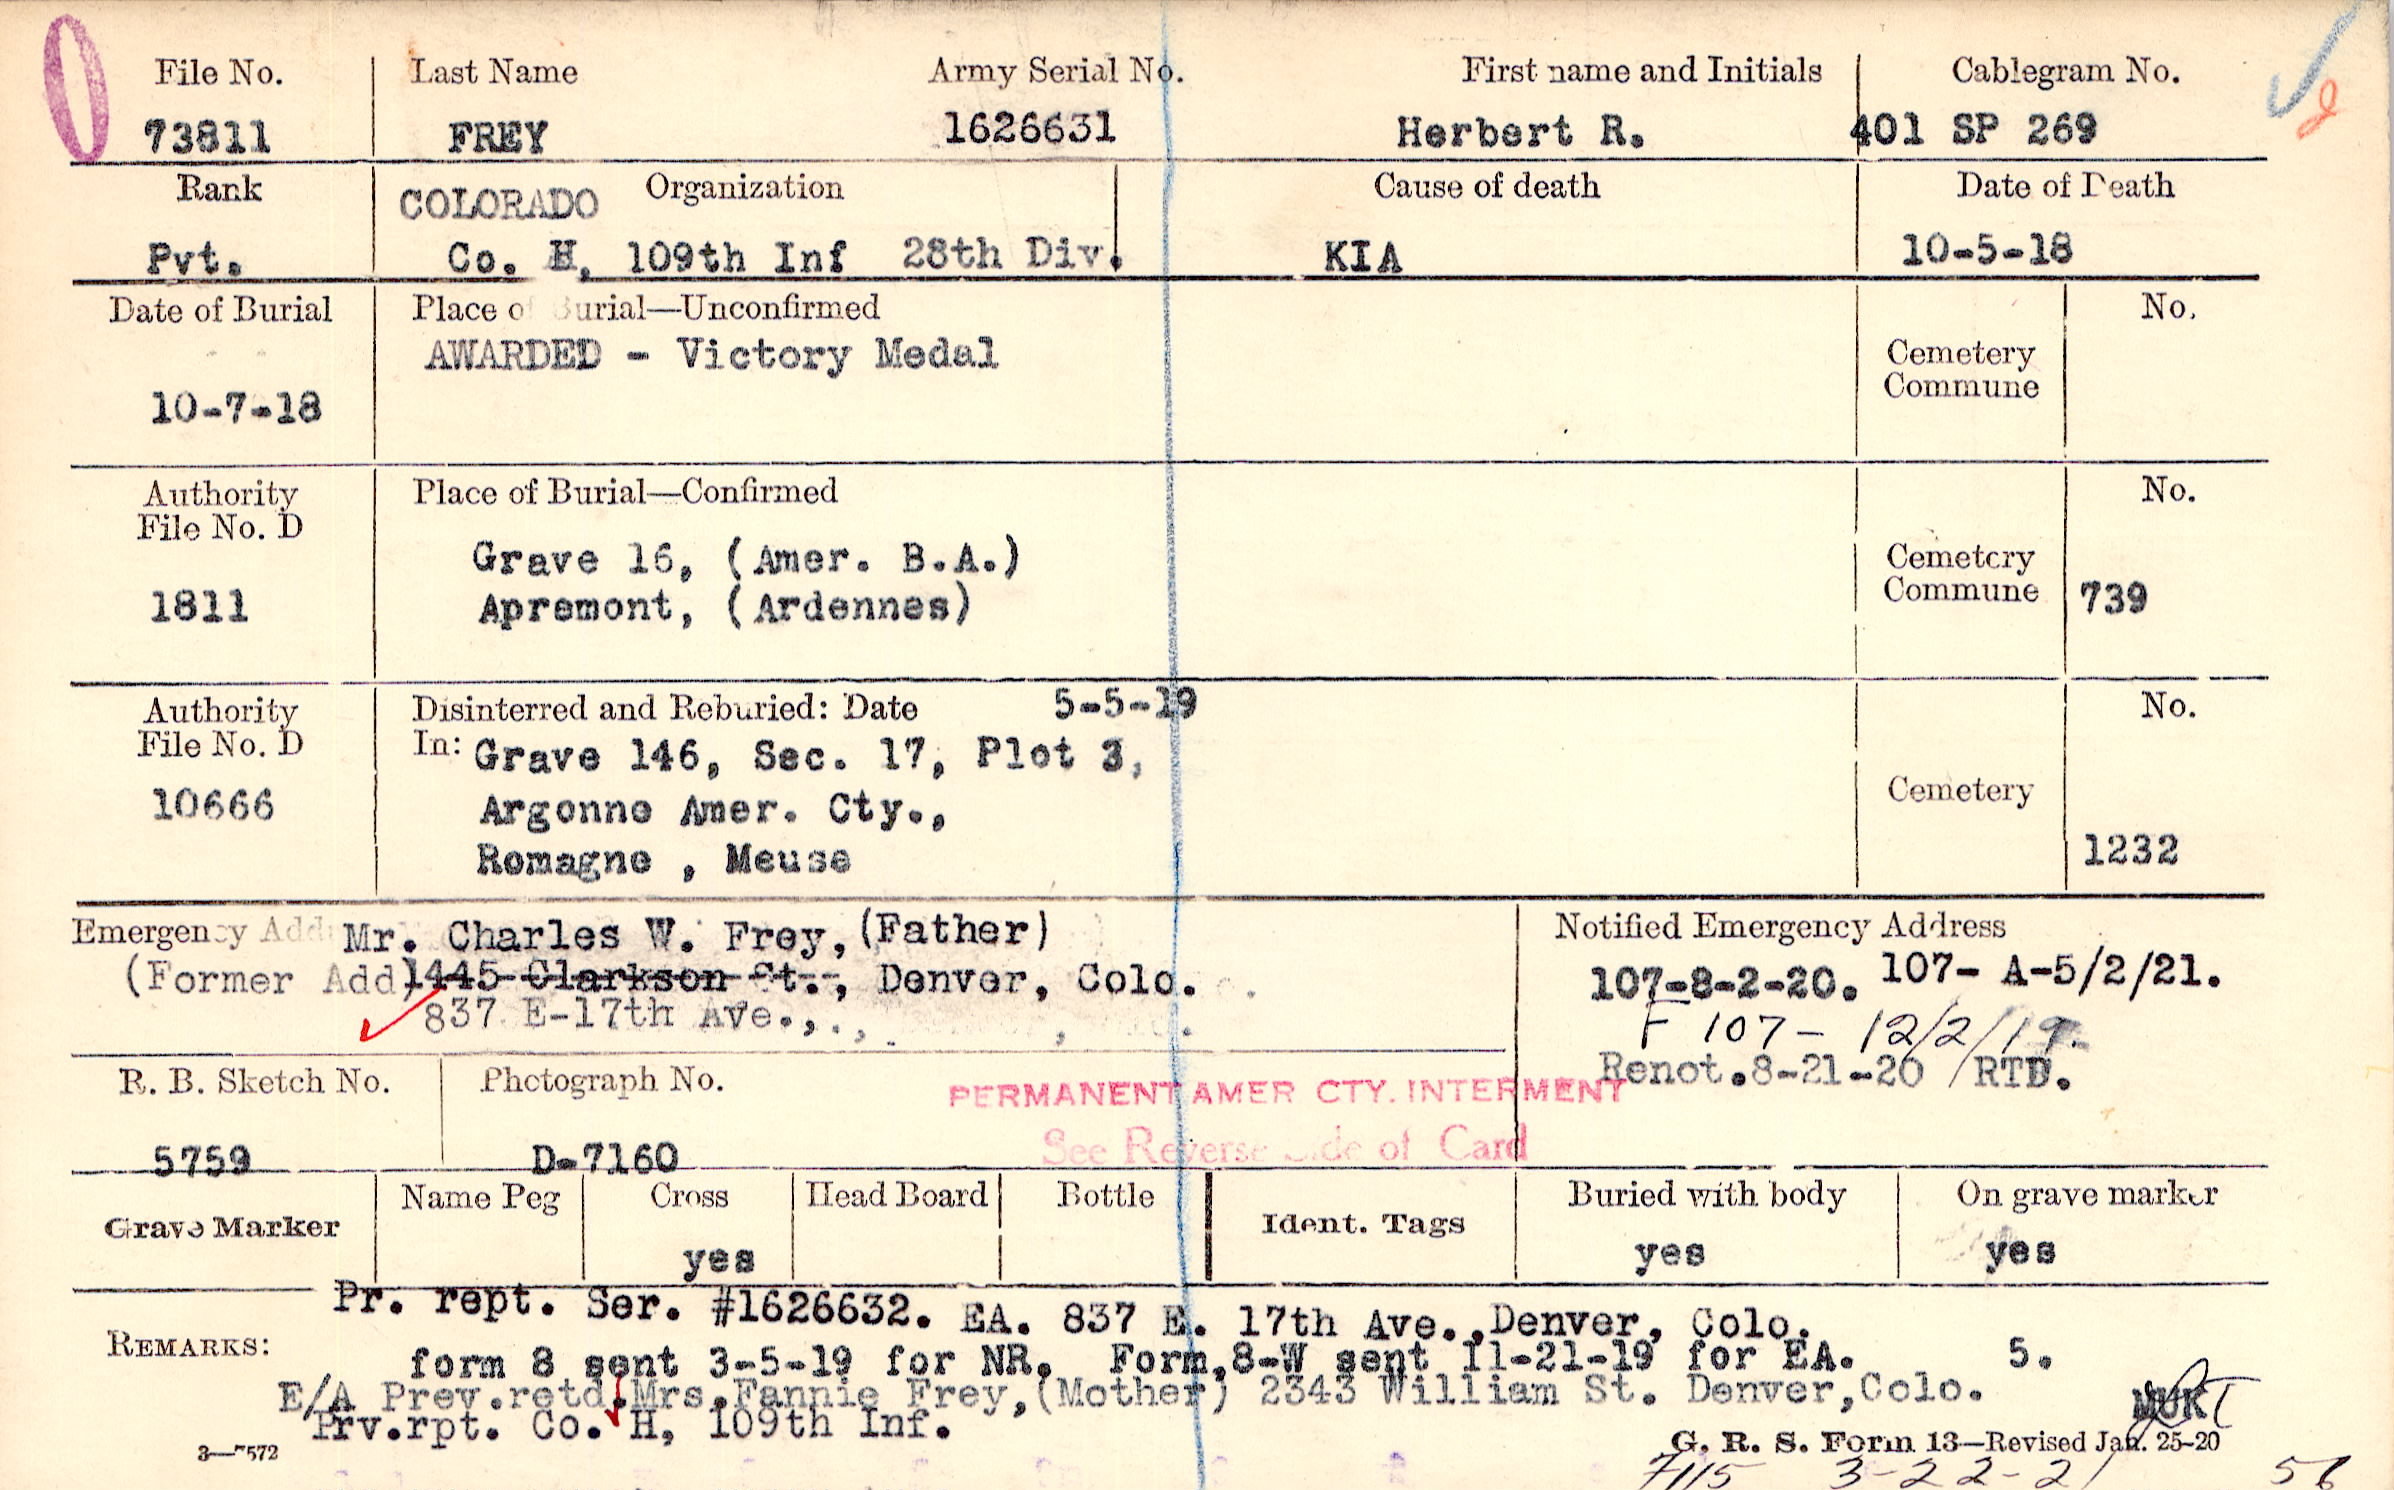 File No. Last Name Army Serial No. First name and Initials Cablegram No.
73811 FREY 1626631 Herbert R. 401 SP 269
Rank COLORADO Organization Cause of death Date of Death
Pvt. Co. H, 109th Inf 28th Div. KIA 10-5-18
Date of Burial Place of Burial—Unconfirmed No.
AWARDED - Victory Medal Cemetery
Commune
10-7-18
Authority Place of Burial—Confirmed No.
File No. D
Grave 16, (Amer. B.A.) Cemetery
1811 Apremont, (Ardennes) Commune 739
Authority Disinterred and Reburied: Date 5-5-19 No.
File No. D In: Grave 146, Sec. 17, Plot 3,
10666 Argonne Amer. Cty., Cemetery
Romagne , Meuse 1232
Emergency Add Mr. Charles W. Frey, (Father) Notified Emergency Address
(Former Add) 1445 Clarkson St., Denver, Colo. 107-8-2-20. 107- A-5/2/21.
837 E-17th Ave., F 107- 12/2/19.
Renot.8-21-20 /RTD.
R. B. Sketch No. Photograph No. PERMANENT AMER CTY. INTERMENT
5759 D-7160 See Reverse Side of Card
Grave Marker Name Peg Cross Head Board Bottle Ident. Tags Buried with body On grave marker
yes yes yes
Pr. rept. Ser. #1626632. EA. 837 E. 17th Ave., Denver, Colo.
REMARKS: form 8 sent 3-5-19 for NR. Form 8-W sent 11-21-19 for EA. 5.
E/A Prev.retd. Mrs.Fannie Frey,(Mother) 2343 William St. Denver,Colo.
Prv.rpt. Co. H, 109th Inf. MUK
3—7572 G. R. S. Form 13—Revised Jan. 25-20
7115 3-22-21 56